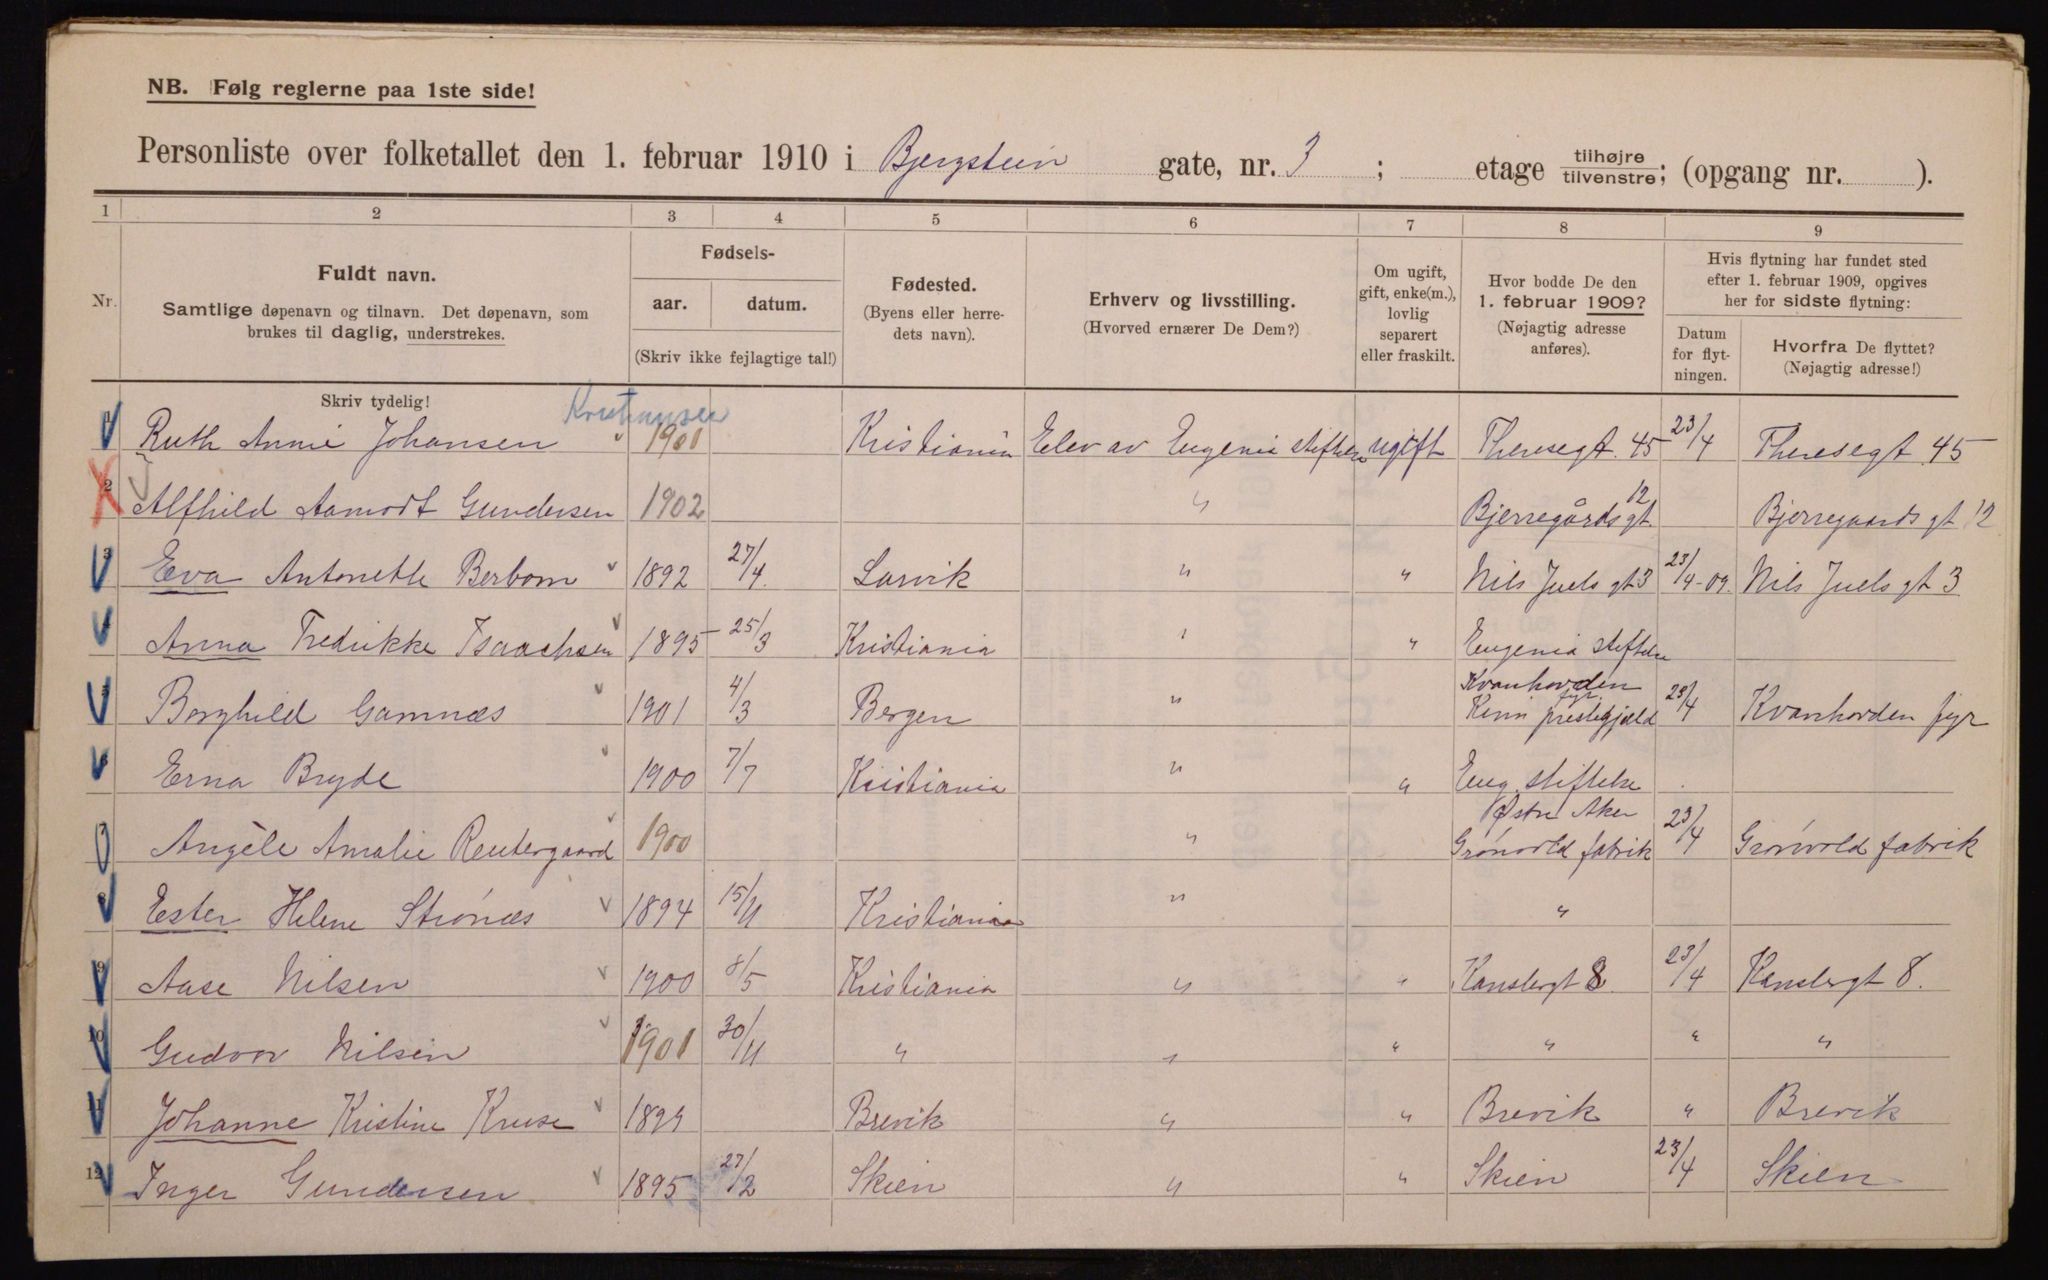 NB. Følg reglerne paa 1ste side!
Personliste over folketallet den 1. februar 1910 i Bjergstein gate, nr. 3 ; etage tilhøjre tilvenstre; (opgang nr. ).
1 2 3 4 5 6 7 8 9
Nr.
Fuldt navn.
Samtlige døpenavn og tilnavn. Det døpenavn, som
brukes til daglig, understrekes.
Skriv tydelig!
Fødsels-
aar. datum.
(Skriv ikke fejlagtige tal!)
Fødested.
(Byens eller herre-
dets navn).
Erhverv og livsstilling.
(Hvorved ernærer De Dem?)
Om ugift,
gift, enke(m.),
lovlig
separert
eller fraskilt.
Hvor bodde De den
1. februar 1909?
(Nøjagtig adresse
anføres).
Hvis flytning har fundet sted
efter 1. februar 1909, opgives
her for sidste flytning:
Datum
for flyt-
ningen.
Hvorfra De flyttet?
(Nøjagtig adresse!)
1 Ruth Annie Johansen 1901 Kristiania Elev av Eugenia stiftelse ugift Theresegt. 45 23/4 Theresegt. 45
2 Alfhild Aamodt Gundersen 1902 " Bjerregårdsgt. 12 Bjerregaards gt 12
3 Eva Antonette Berbom 1892 27/4. Larvik " " Nils Juels gt 3 23/4-09. Nils Juels gt 3
4 Anna Fredrikke Isaachsen 1895 25/3 Kristiania " " Eugenia stiftelse
5 Borghild Gamnæs 1901 4/3 Bergen " Kvanhovden fyr
Kinn prestegjæld 23/4 Kvanhovden fyr
6 Erna Bryde 1900 7/7 Kristiania " " Eug. stiftelse
7 Angèle Amalie Reutergaard 1900 " Østre Aker
Grønvold fabrik 23/4 Grønvold fabrik
8 Ester Helene Strønæs 1894 15/11 Kristiania " "
9 Aase Nilsen 1900 8/5 Kristiania " " Kanslergt 8. 23/4 Kanslergt 8.
10 Gudvor Nilsen 1901 30/11 " " " " " "
11 Johanne Kristine Kruse 1899 Brevik " " Brevik " Brevik
12 Inger Gundersen 1895 27/2 Skien " " Skien 23/4 Skien